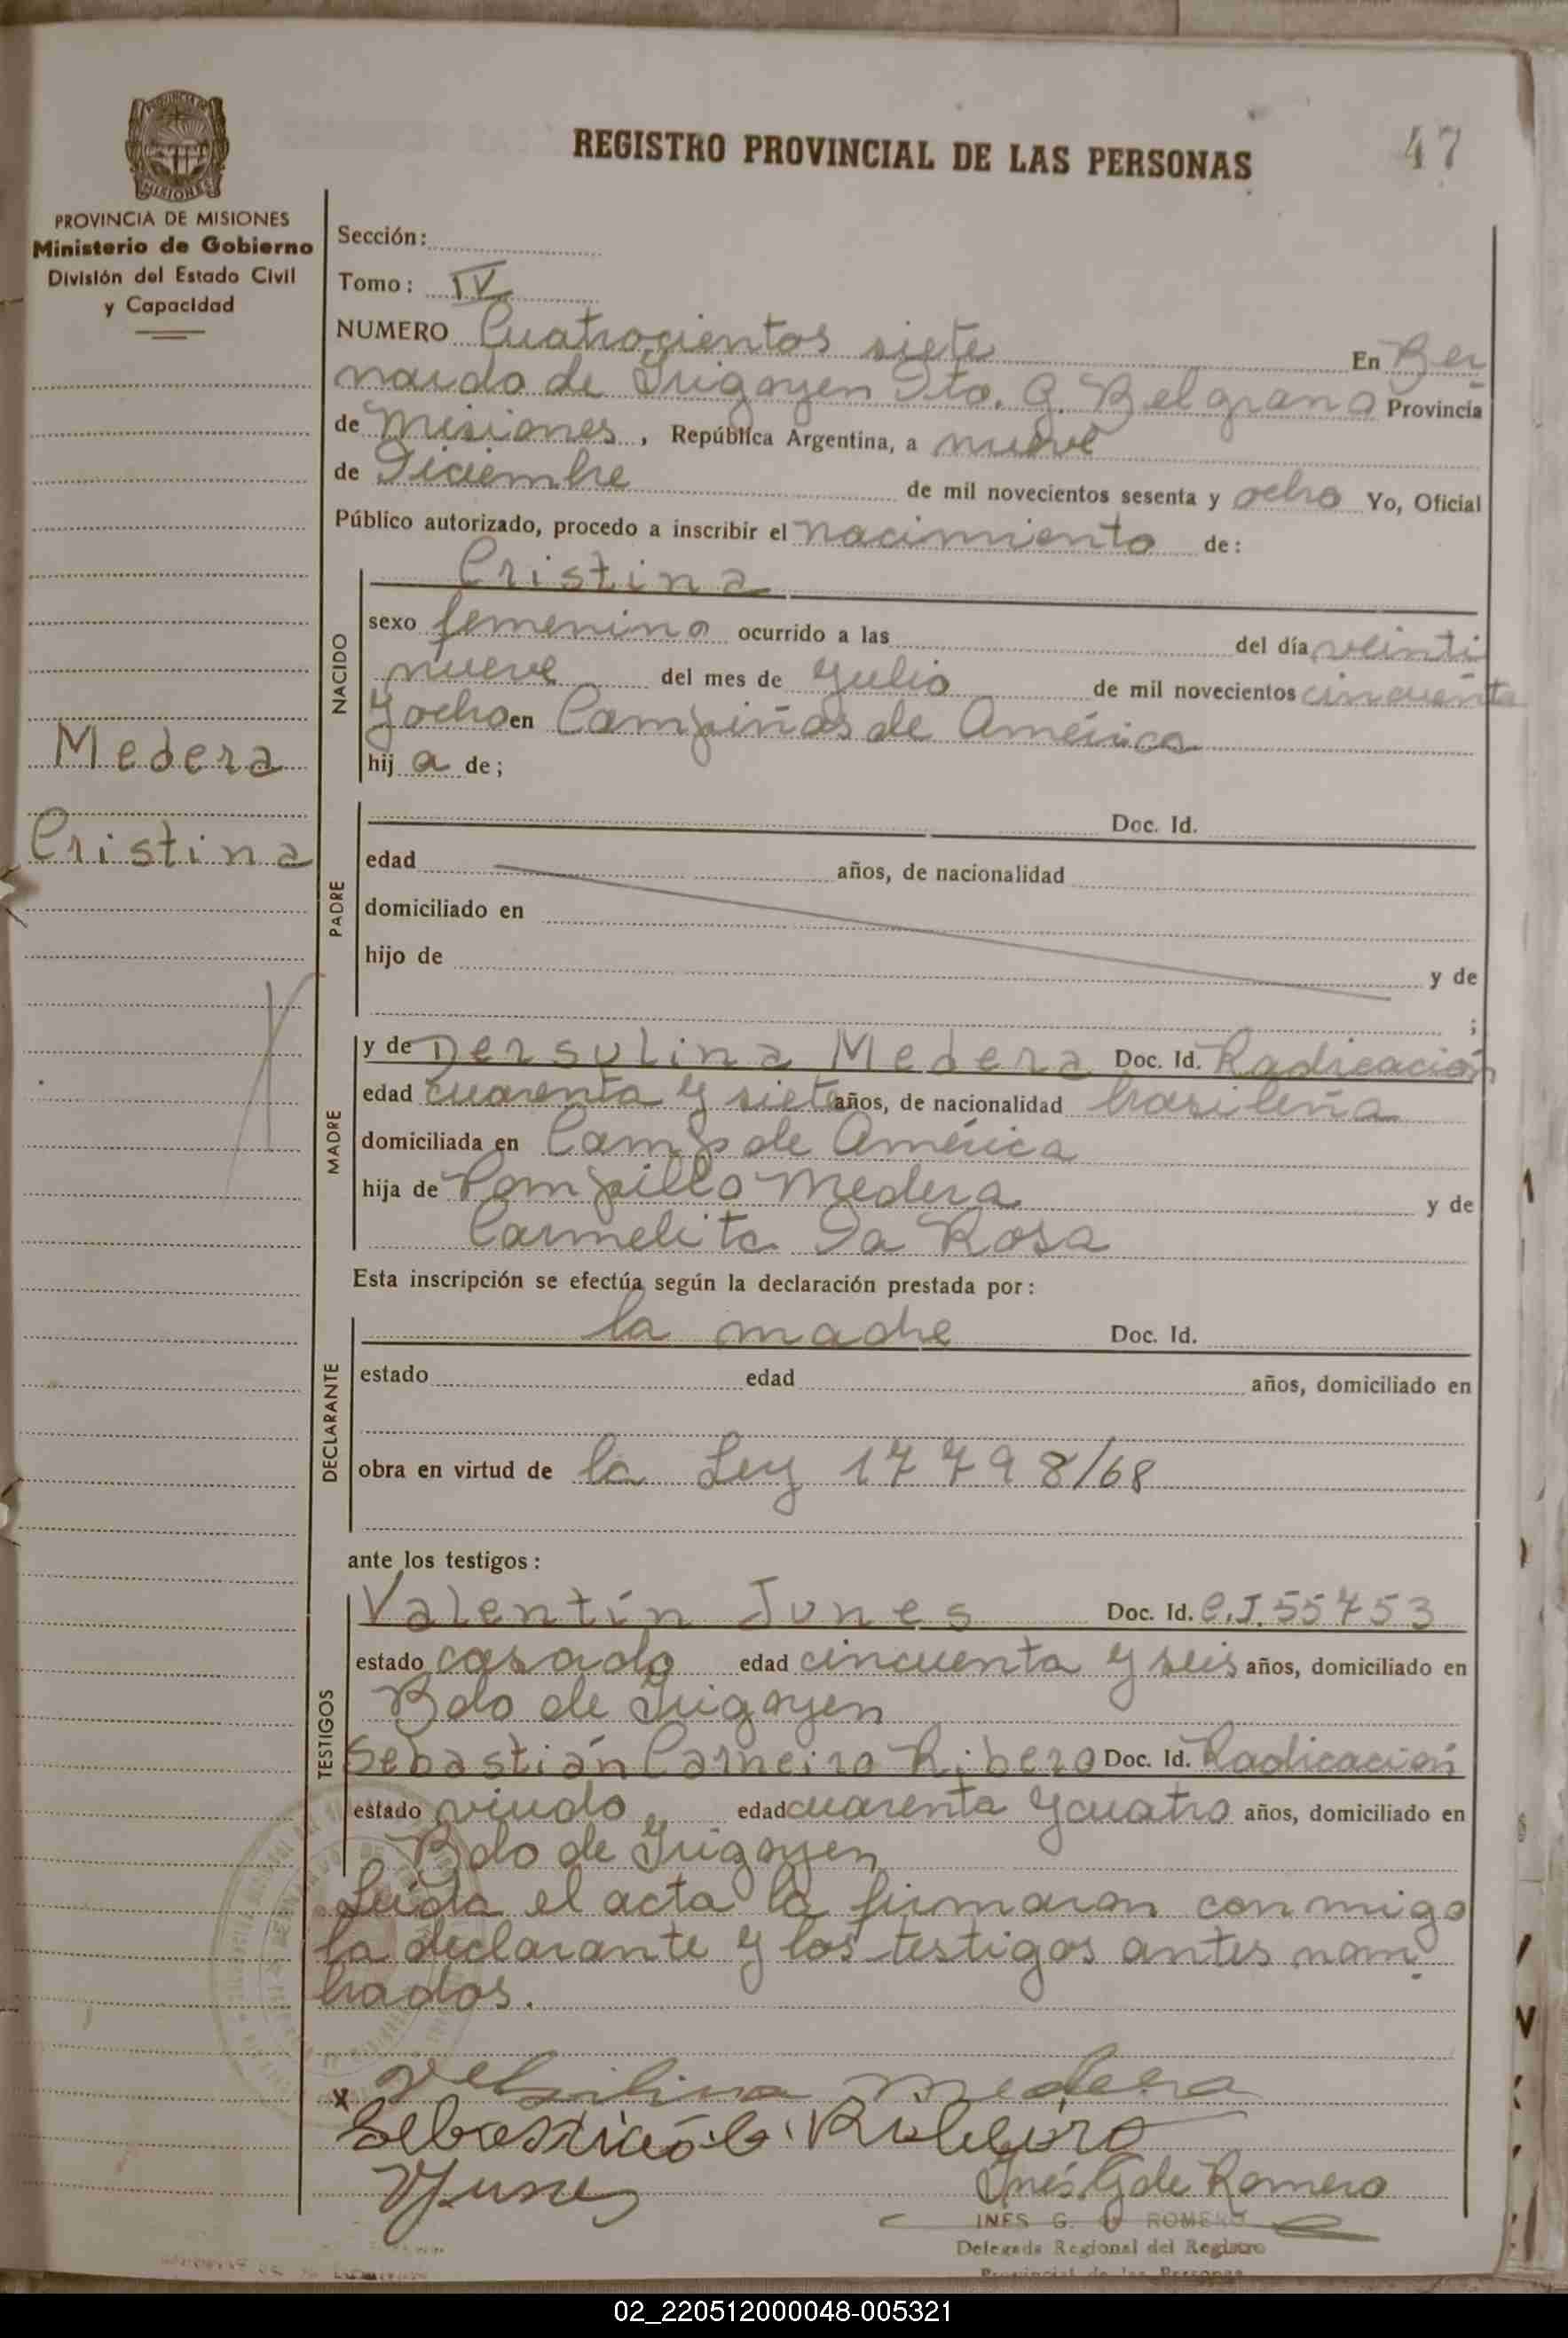 REGISTRO PROVINCIAL DE LAS PERSONAS
47
PROVINCIA DE MISIONES
Ministerio de Gobierno
División del Estado Civil
y Capacidad
Sección:
Tomo: IV
NUMERO Cuatrocientos siete En Ber
nardo de Irigoyen Dto. G. Belgrano Provincia
de Misiones, República Argentina, a nueve
de Diciembre de mil novecientos sesenta y ocho Yo, Oficial
Público autorizado, procedo a inscribir el nacimiento de:
NACIDO
Cristina
sexo femenino ocurrido a las del día veinti
nueve del mes de Julio de mil novecientos cincuenta
y ocho en Campiñas de América
hija de;
Medera
Cristina
PADRE
Doc. Id.
edad años, de nacionalidad
domiciliado en
hijo de y de
;
MADRE
y de Dersulina Medera Doc. Id. Radicación
edad cuarenta y siete años, de nacionalidad brasileña
domiciliada en Camp de América
hija de Pompillo Medera y de
Carmelita Da Rosa
Esta inscripción se efectúa según la declaración prestada por:
DECLARANTE
la madre Doc. Id.
estado edad años, domiciliado en
obra en virtud de la Ley 17798/68
ante los testigos:
TESTIGOS
Valentín Junes Doc. Id. C.I. 55753
estado casado edad cincuenta y seis años, domiciliado en
Bdo de Irigoyen
Sebastián Carneiro Ribero Doc. Id. Radicación
estado viudo edad cuarenta y cuatro años, domiciliado en
Bdo de Irigoyen
Leída el acta la firmaron conmigo
la declarante y los testigos antes nom
brados.
x Medera
Sebastião C. Ribeiro
Inés G de Romero
INES G. de ROMERO
Delegada Regional del Registro
Provincial de las Personas
02_220512000048-005321